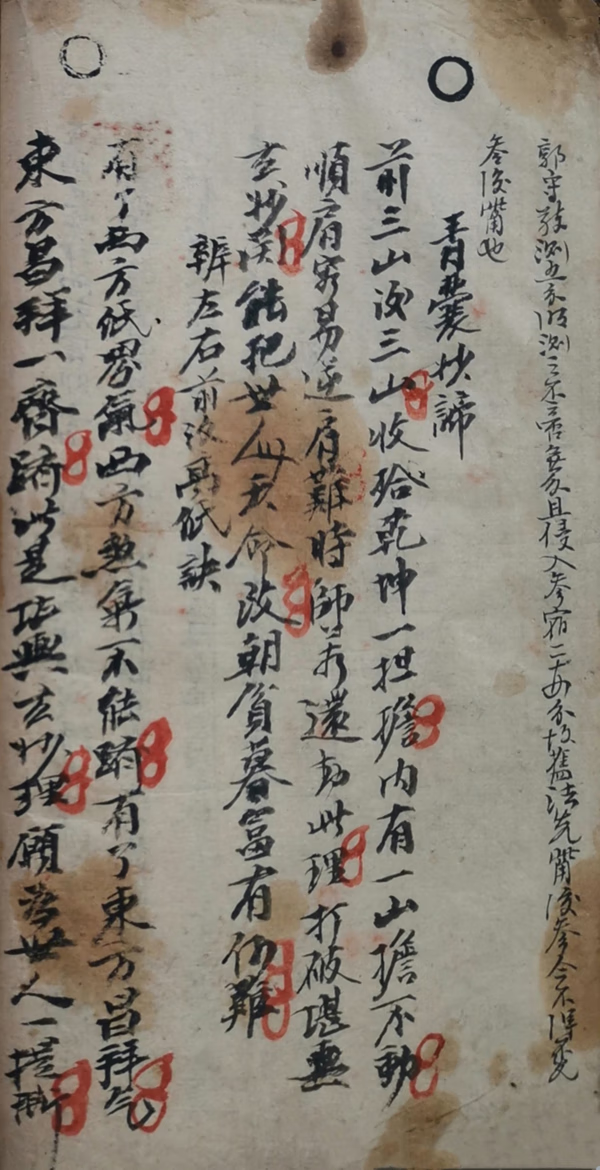 郭守敬測五分
測三不
且侵入參宿二十
分故舊法先觜後參今不得
參後觜也
青囊妙諦
前三山後三山收拾乾坤一担擔內有一山擔不動
順肩容易逆肩難時師若還知此理打破堪輿
玄妙関能把世人天命改朝貧暮富有何難
辨左右前後高低訣
有了西方低界氣西方煞氣不能躋有了東方昌拜氣
東方昌拜一齊躋此是堪輿玄妙理願為世人一提